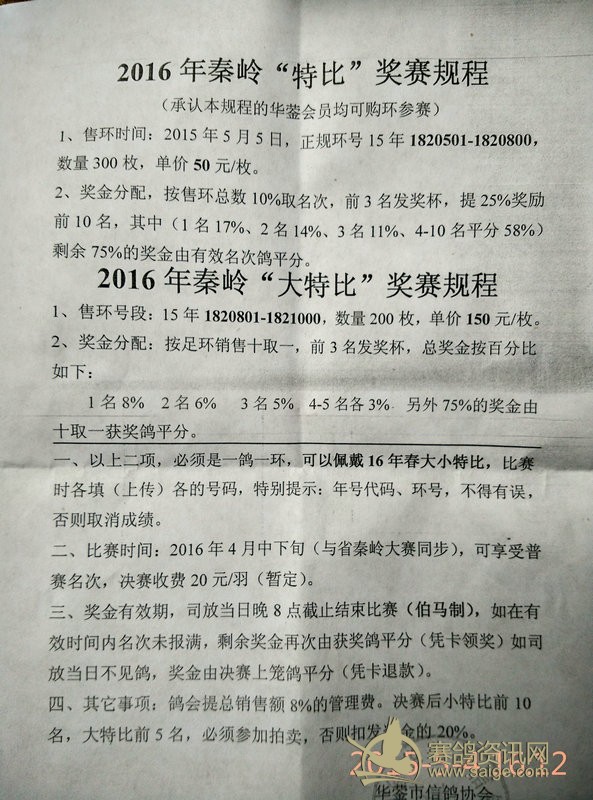 2016 年秦岭“特比”奖赛规程
（承认本规程的华蓥会员均可购环参赛）
1、售环时间：2015 年 5 月 5 日，正规环号 15 年 1820501-1820800，
数量 300 枚，单价 50 元/枚。
2、奖金分配，按售环总数 10%取名次，前 3 名发奖杯，提 25%奖励
前 10 名，其中（1 名 17%、2 名 14%、3 名 11%、4-10 名平分 58%）
剩余 75%的奖金由有效名次鸽平分。
2016 年秦岭“大特比”奖赛规程
1、售环号段：15 年 1820801-1821000，数量 200 枚，单价 150 元/枚。
2、奖金分配：按足环销售十取一，前 3 名发奖杯，总奖金按百分比
如下：
1 名 8% 2 名 6% 3 名 5% 4-5 名各 3% 另外 75%的奖金由
十取一获奖鸽平分。
一、以上二项，必须是一鸽一环，可以佩戴 16 年春大小特比，比赛
时各填（上传）各的号码，特别提示：年号代码、环号，不得有误，
否则取消成绩。
二、比赛时间：2016 年 4 月中下旬（与省秦岭大赛同步），可享受普
赛名次，决赛收费 20 元/羽（暂定）。
三、奖金有效期，司放当日晚 8 点截止结束比赛（伯马制），如在有
效时间内名次未报满，剩余奖金再次由获奖鸽平分（凭卡领奖）如司
放当日不见鸽，奖金由决赛上笼鸽平分（凭卡退款）。
四、其它事项：鸽会提总销售额 8%的管理费。决赛后小特比前 10
名，大特比前 5 名，必须参加拍卖，否则扣发奖金的 20%。
赛鸽资讯网
www.saige.com
华蓥市信鸽协会